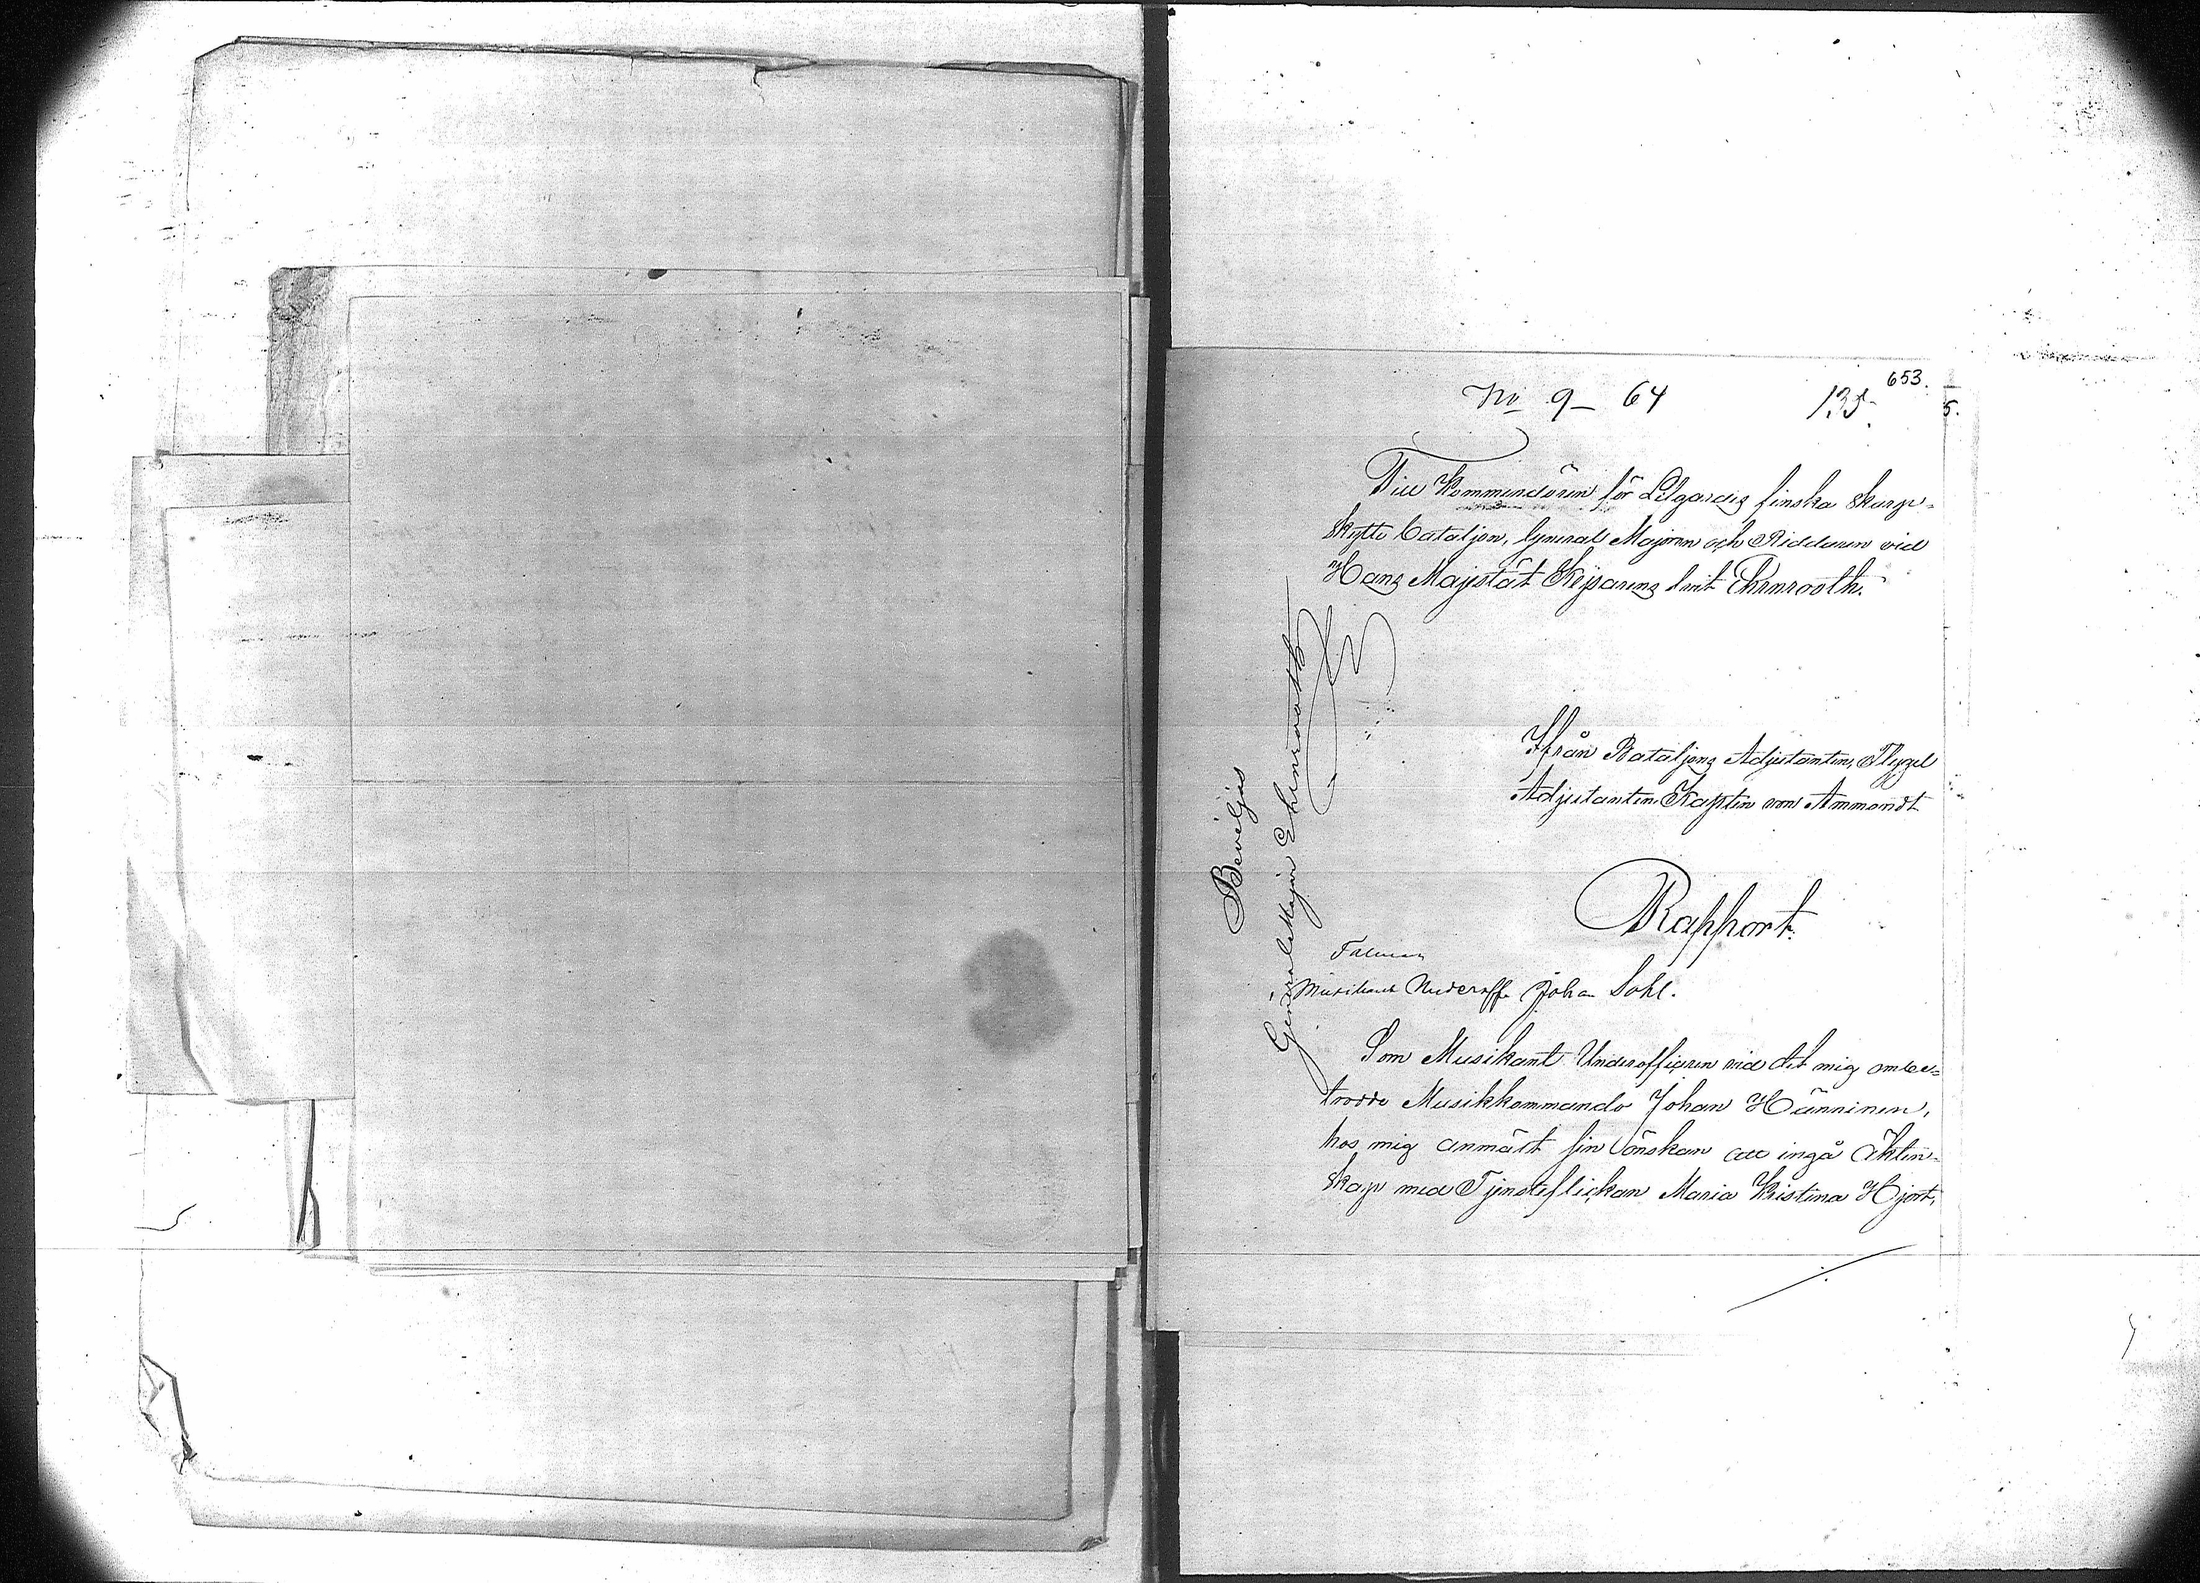 653.
No 9 — 64
135.
5.
Till Kommendören för Lifgardes finska skarp-
skytte bataljon, General Majoren och Riddaren vid
Hans Majestät Kejsarens svit Ehrnrooth.
Ifrån Bataljons Adjutanten, Flygel
Adjutanten Kapten von Ammondt
Rapport.
Beviljas
General Major Ehrnrooth
Musikant Underoff. Johan Sohl.
Som Musikant Underofficeren vid det mig ombe-
trodde Musikkommando Johan Hänninen,
hos mig anmält sin önskan att ingå äkten-
skap med Tjensteflickan Maria Kristina Hjort,